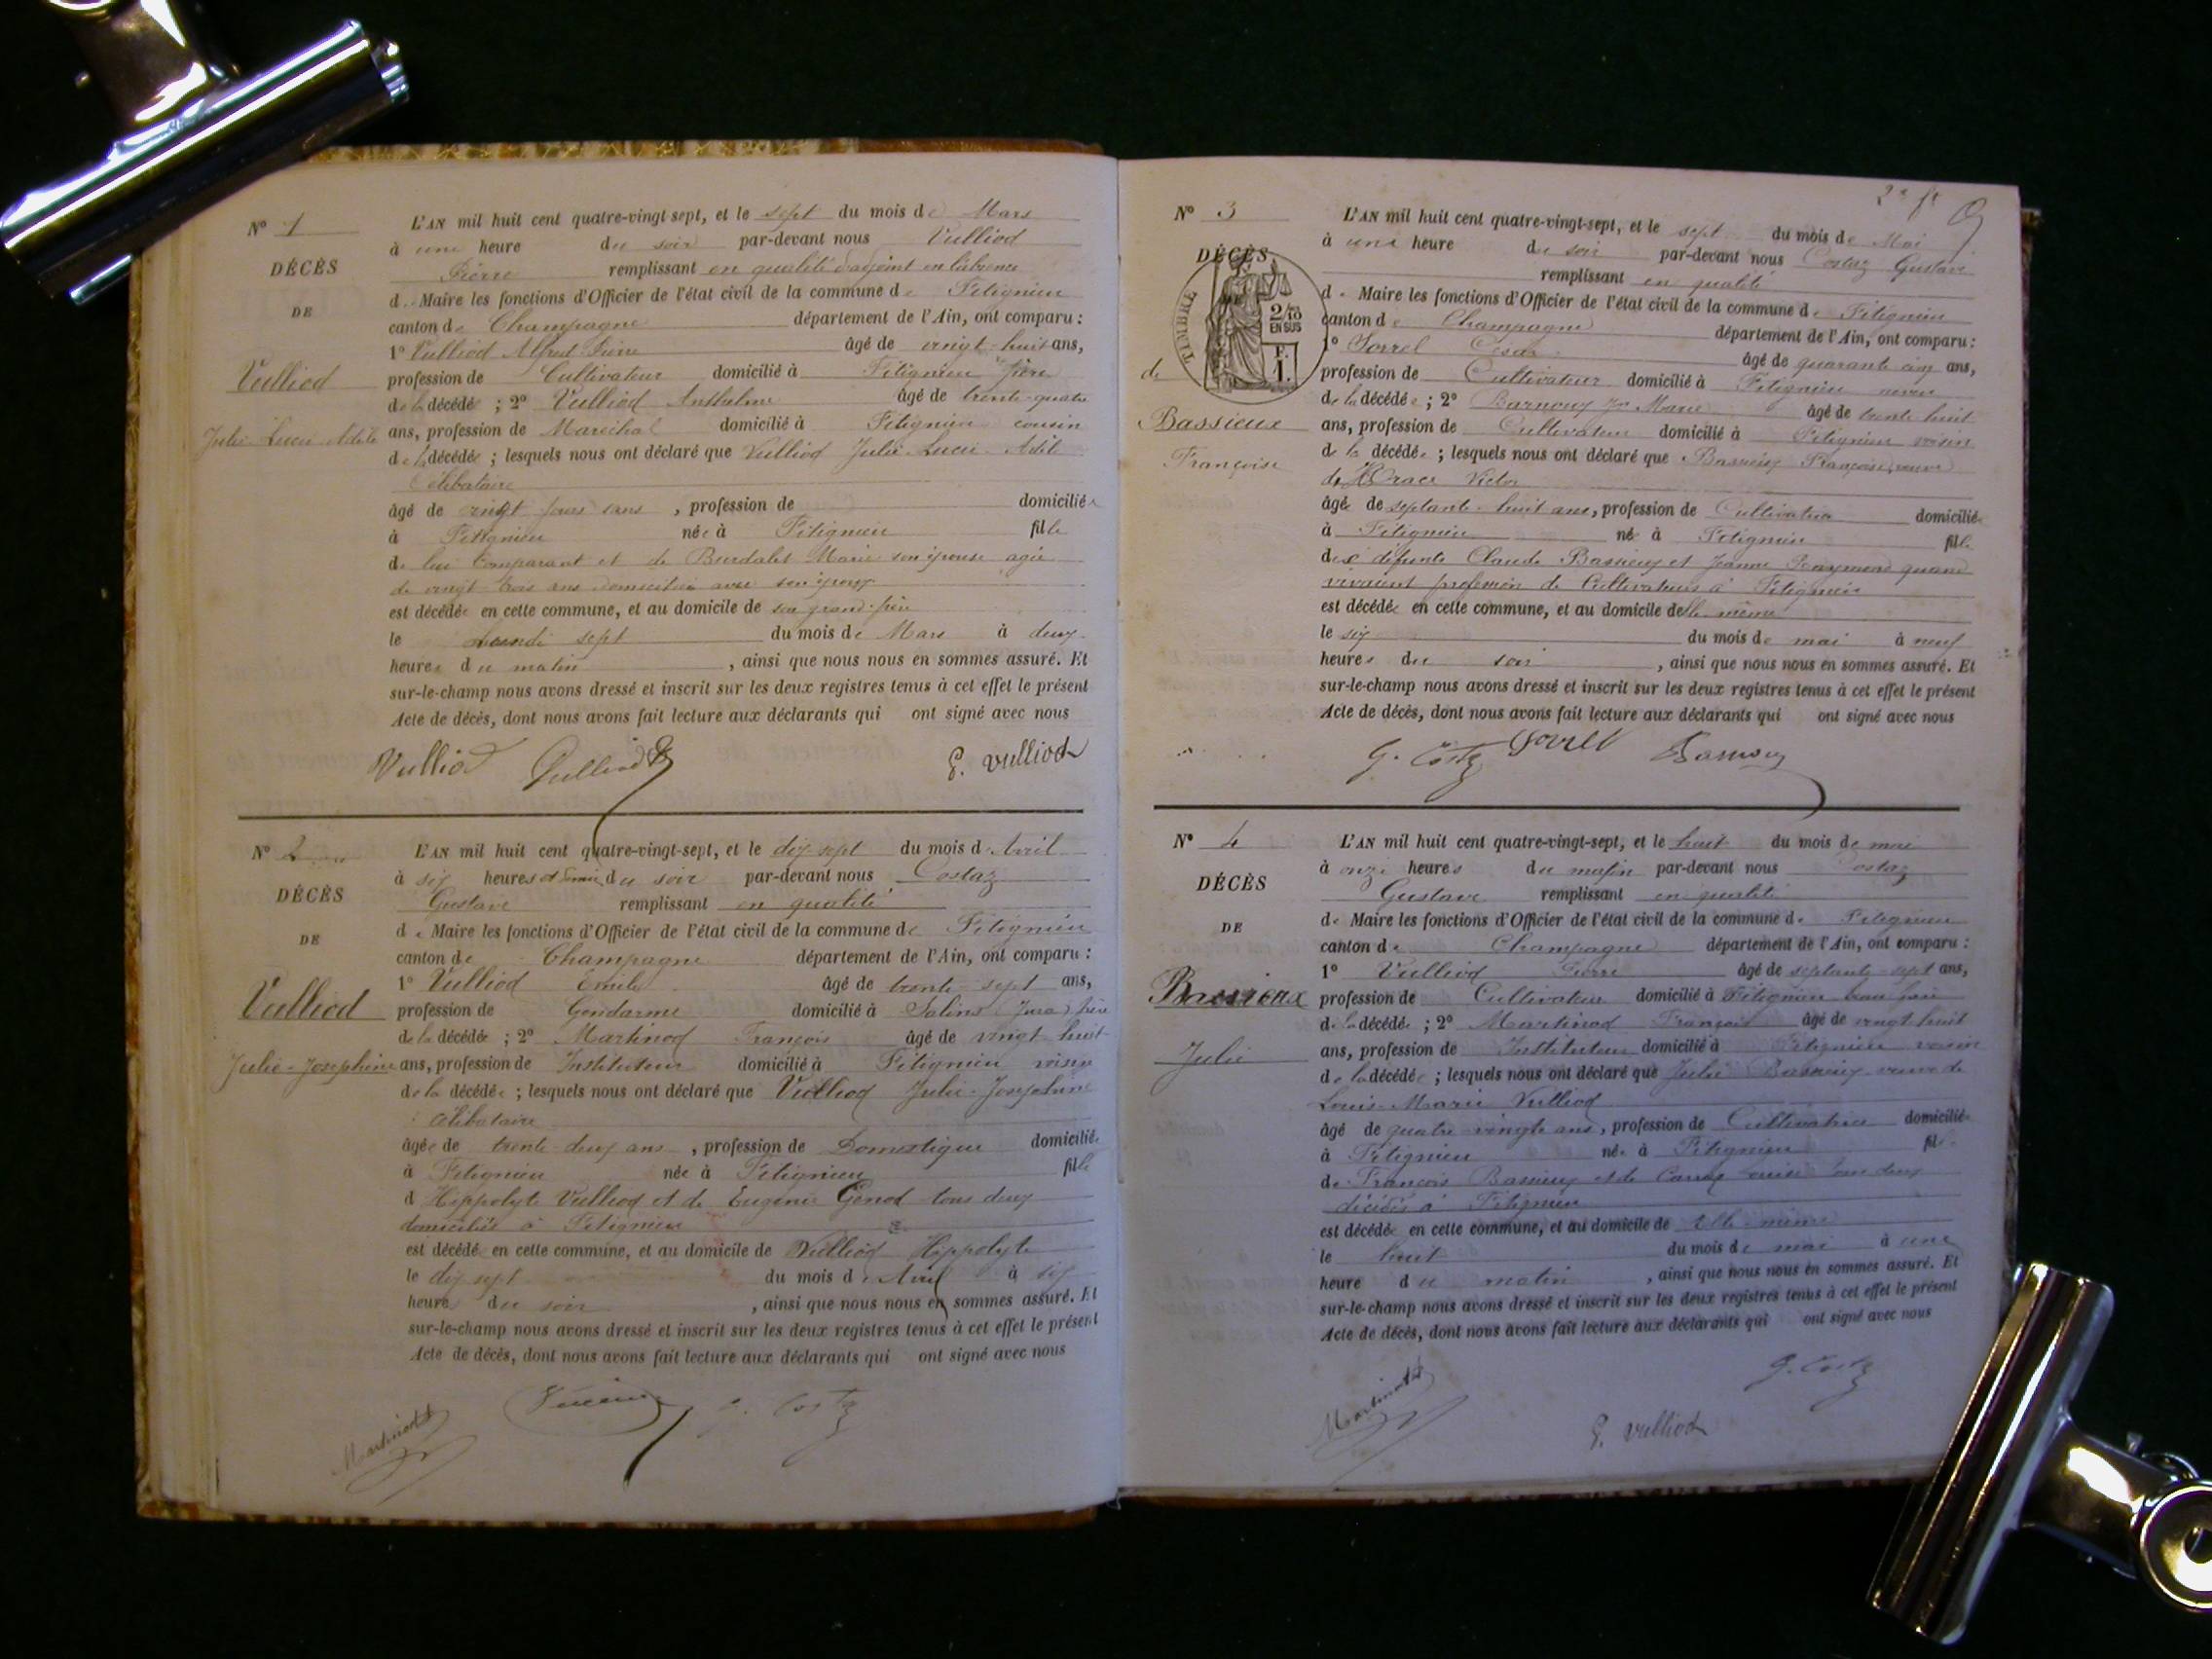 N° 1
DÉCÈS
DE
Vulliod
Julie Lucie Adèle
L'AN mil huit cent quatre-vingt-sept, et le sept du mois de Mars
à une heure du soir par-devant nous Vulliod
Pierre remplissant en qualité d'adjoint en l'absence
d. Maire les fonctions d'Officier de l'état civil de la commune de Fitignieu
canton de Champagne département de l'Ain, ont comparu :
1° Vulliod Alfred Pierre âgé de vingt-huit ans,
profession de Cultivateur domicilié à Fitignieu père
de la décédée ; 2° Vulliod Anthelme âgé de trente-quatre
ans, profession de Maréchal domicilié à Fitignieu cousin
de la décédée ; lesquels nous ont déclaré que Vulliod Julie-Lucie-Adèle
Célibataire
âgé de vingt jours sans , profession de domiciliée
à Fitignieu née à Fitignieu fille
de lui Comparant et de Burdalet Marie son épouse agée
de vingt trois ans domiciliée avec son époux
est décédée en cette commune, et au domicile de son grand-père
le Lundi sept du mois de Mars à deux
heures du matin , ainsi que nous nous en sommes assuré. Et
sur-le-champ nous avons dressé et inscrit sur les deux registres tenus à cet effet le présent
Acte de décès, dont nous avons fait lecture aux déclarants qui ont signé avec nous
Vulliod Vulliod P. Vulliod
N° 2
DÉCÈS
DE
Vulliod
Julie-Joséphine
L'AN mil huit cent quatre-vingt-sept, et le dix sept du mois d'Avril
à six heures et demie du soir par-devant nous Costaz
Gustave remplissant en qualité
de Maire les fonctions d'Officier de l'état civil de la commune de Fitignieu
canton de Champagne département de l'Ain, ont comparu :
1° Vulliod Emile âgé de trente-sept ans,
profession de Gendarme domicilié à Salins (Jura) frère
de la décédée ; 2° Martinod François âgé de vingt huit
ans, profession de Instituteur domicilié à Fitignieu voisin
de la décédée ; lesquels nous ont déclaré que Vulliod Julie-Joséphine
célibataire
âgée de trente-deux ans , profession de Domestique domiciliée
à Fitignieu née à Fitignieu fille
d Hippolyte Vulliod et de Eugénie Genod tous deux
domiciliés à Fitignieu
est décédé en cette commune, et au domicile de Vulliod Hippolyte
le dix sept du mois d'Avril à six
heure du soir , ainsi que nous nous en sommes assuré. Et
sur-le-champ nous avons dressé et inscrit sur les deux registres tenus à cet effet le présent
Acte de décès, dont nous avons fait lecture aux déclarants qui ont signé avec nous
Martinod G. Costaz
2e ft
N° 3
DÉCÈS
TIMBRE
2/10
EN SUS
de
Bassieux
Françoise
L'AN mil huit cent quatre-vingt-sept, et le sept du mois de Mai
à une heure du soir par-devant nous Costaz Gustave
remplissant en qualité
de Maire les fonctions d'Officier de l'état civil de la commune de Fitignieu
canton de Champagne département de l'Ain, ont comparu :
1° Sorrel César âgé de quarante cinq ans,
profession de Cultivateur domicilié à Fitignieu neveu
de la décédée ; 2° Barnoux Jn Marie âgé de trente huit
ans, profession de Cultivateur domicilié à Fitignieu voisin
de la décédée ; lesquels nous ont déclaré que Bassieux Françoise veuve
de Victor
âgée de septante-huit ans, profession de Cultivatrice domiciliée
à Fitignieu né à Fitignieu fille
des défunts Claude Bassieux et Jeanne Raymond quand
vivaient profession de Cultivateurs à Fitignieu
est décédée en cette commune, et au domicile delle même
le six du mois de mai à neuf
heures du soir , ainsi que nous nous en sommes assuré. Et
sur-le-champ nous avons dressé et inscrit sur les deux registres tenus à cet effet le présent
Acte de décès, dont nous avons fait lecture aux déclarants qui ont signé avec nous
G. Costaz Sorrel Barnoux
N° 4
DÉCÈS
DE
Bassieux
Julie
L'AN mil huit cent quatre-vingt-sept, et le huit du mois de mai
à onze heures du matin par-devant nous Costaz
Gustave remplissant en qualité
de Maire les fonctions d'Officier de l'état civil de la commune de Fitignieu
canton de Champagne département de l'Ain, ont comparu :
1° Vulliod Pierre âgé de septante-sept ans,
profession de Cultivateur domicilié à Fitignieu beau frère
de la décédée ; 2° Martinod François âgé de vingt huit
ans, profession de Instituteur domicilié à Fitignieu voisin
de la décédée ; lesquels nous ont déclaré que Julie Bassieux veuve de
Louis-Marie Vulliod
âgé de quatre-vingts ans, profession de Cultivatrice domiciliée
à Fitignieu née à Fitignieu fille
de François Bassieux et de tous deux
décédés à Fitignieu
est décédé en cette commune, et au domicile de Elle-même
le huit du mois de mai à une
heure du matin , ainsi que nous nous en sommes assuré. Et
sur-le-champ nous avons dressé et inscrit sur les deux registres tenus à cet effet le présent
Acte de décès, dont nous avons fait lecture aux déclarants qui ont signé avec nous
Martinod P. Vulliod G. Costaz